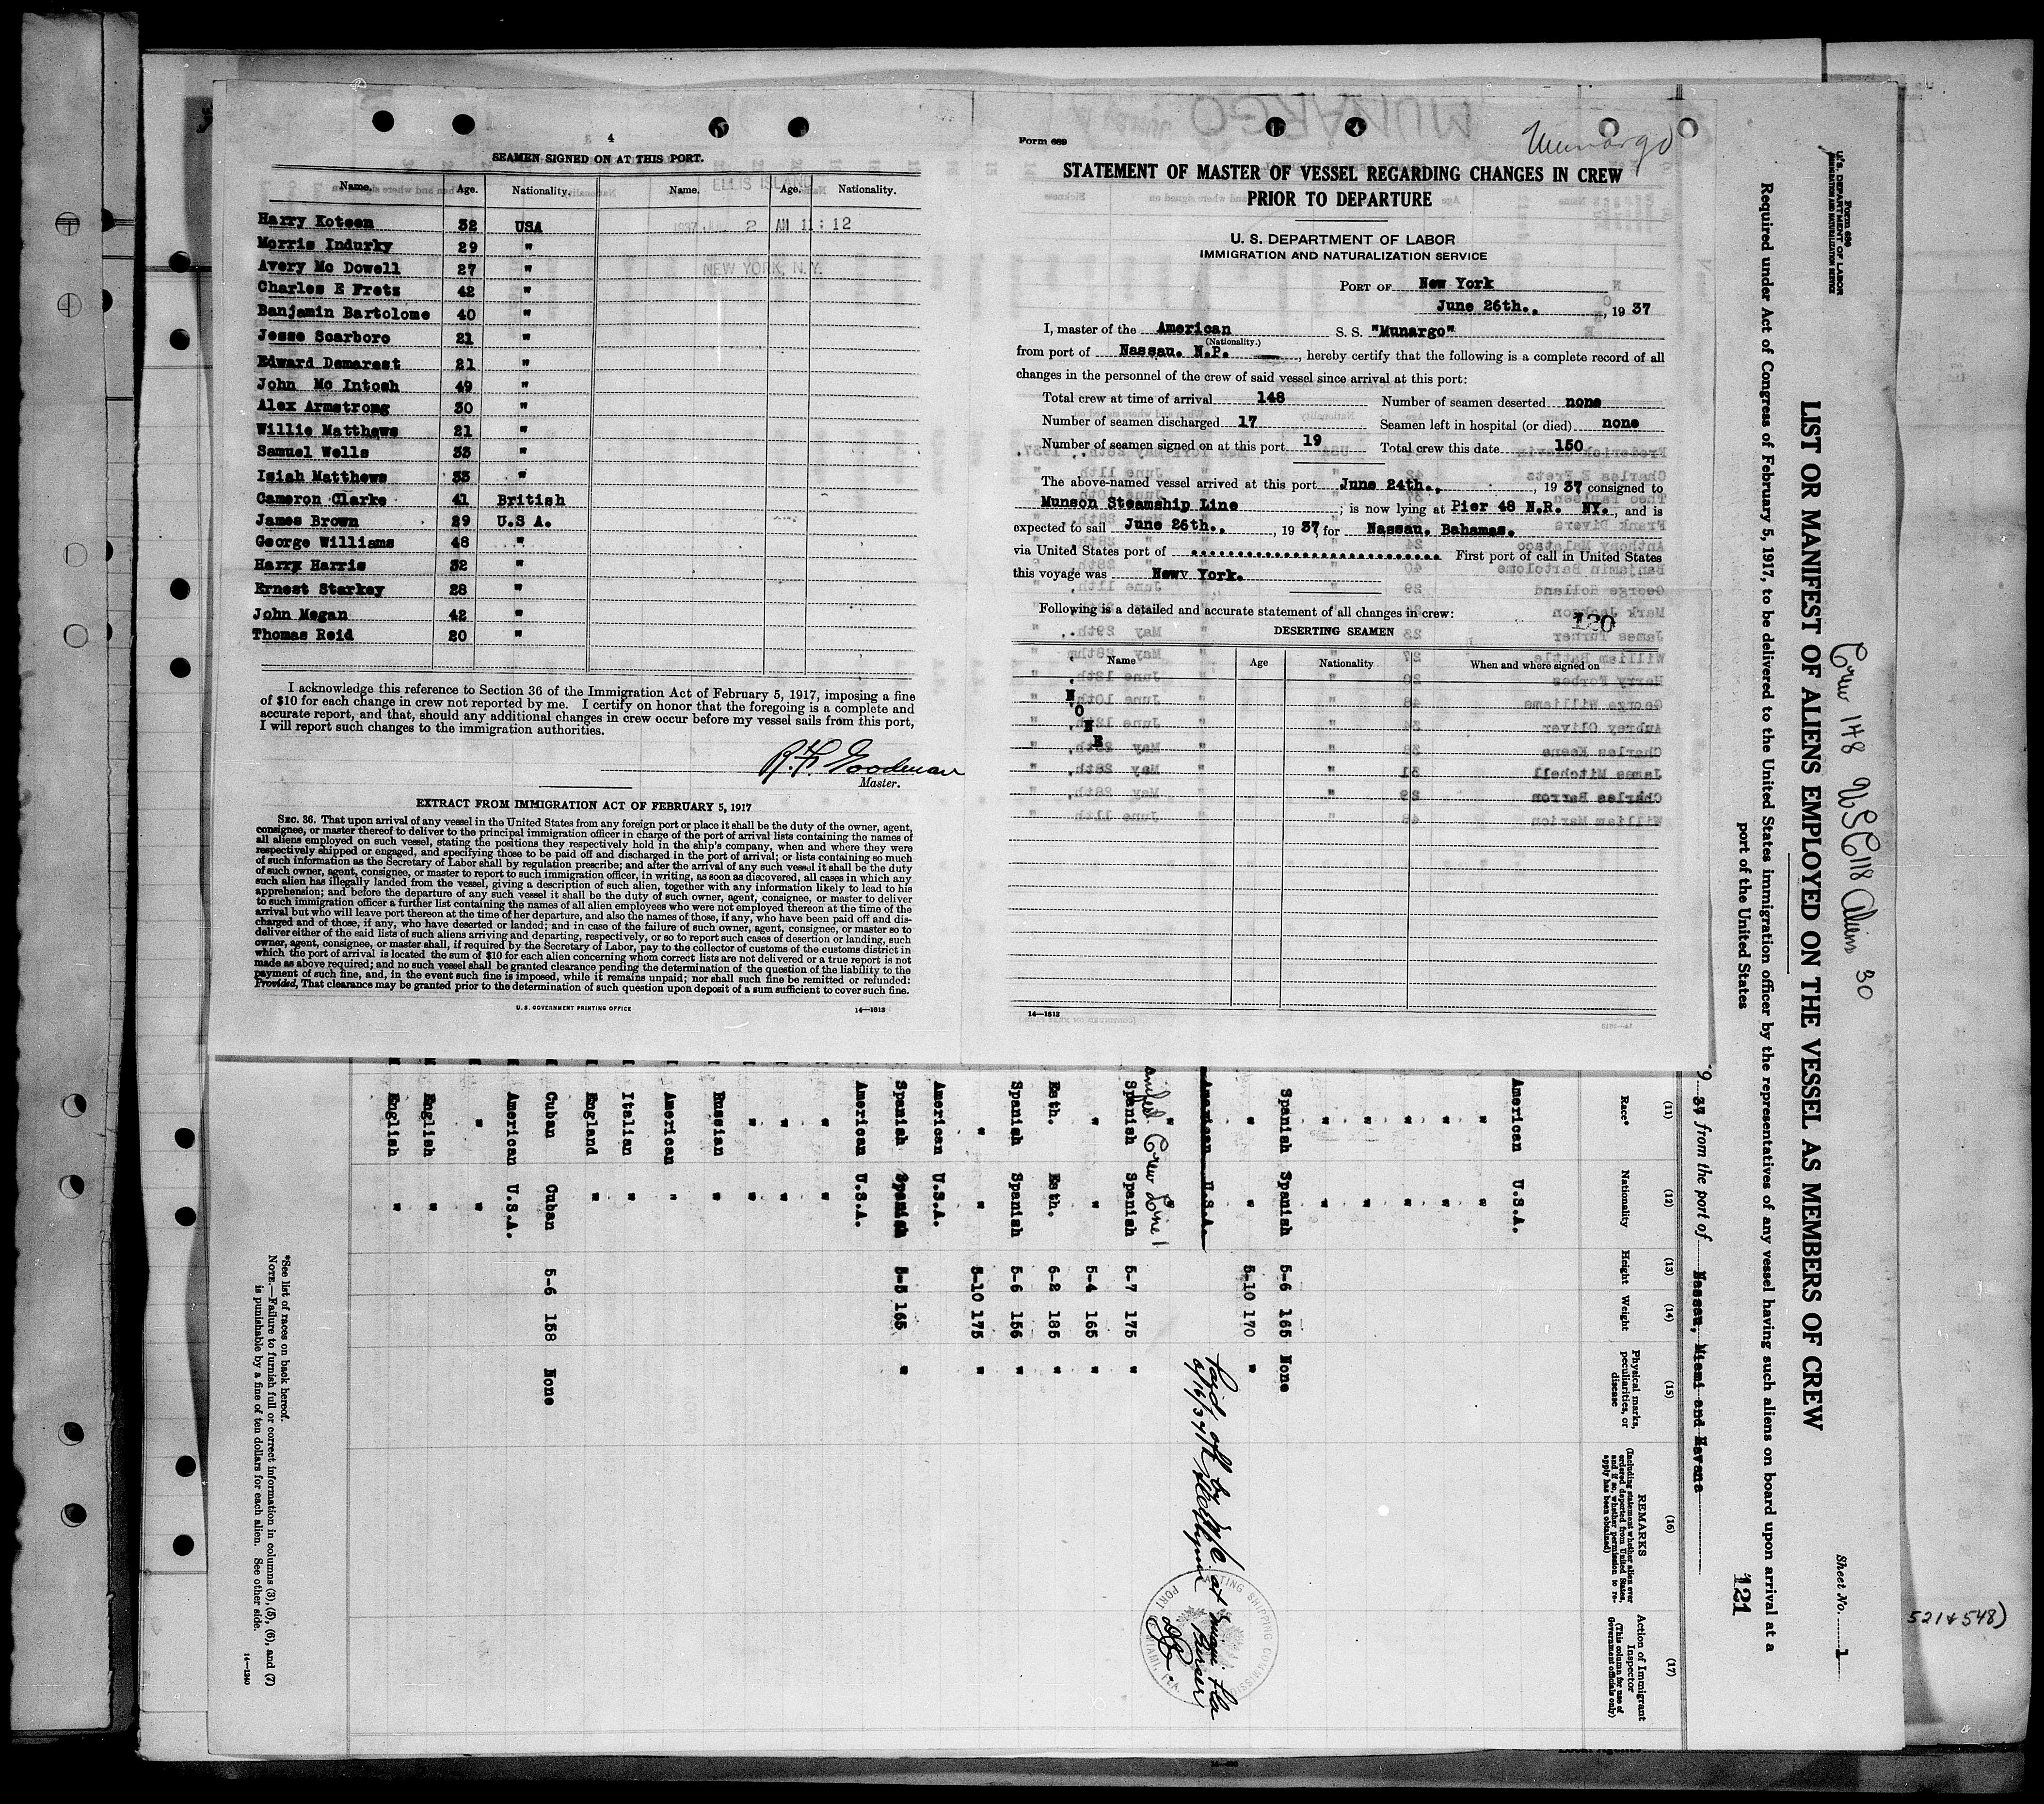 4
SEAMEN SIGNED ON AT THIS PORT.
Name. Age. Nationality. Name. Age. Nationality.
ELLIS ISLAND
Harry Koteen 32 USA
2 AM 11:12
Morris Indurky 29 "
Avery Mc Dowell 27 "
NEW YORK, N.Y.
Charles E Fretz 42 "
Banjamin Bartolome 40 "
Jesse Scarboro 21 "
Edward Demarest 21 "
John Mc Intosh 49 "
Alex Armstrong 30 "
Willie Matthews 21 "
Samuel Wells 33 "
Isiah Matthews 33 "
Cameron Clarke 41 British
James Brown 29 U.S A.
George Williams 48 "
Harry Harris 32 "
Ernest Starkey 28 "
John Megan 42 "
Thomas Reid 20 "
I acknowledge this reference to Section 36 of the Immigration Act of February 5, 1917, imposing a fine
of $10 for each change in crew not reported by me. I certify on honor that the foregoing is a complete and
accurate report, and that, should any additional changes in crew occur before my vessel sails from this port,
I will report such changes to the immigration authorities.
R. H. Goodman
Master.
EXTRACT FROM IMMIGRATION ACT OF FEBRUARY 5, 1917
SEC. 36. That upon arrival of any vessel in the United States from any foreign port or place it shall be the duty of the owner, agent,
consignee, or master thereof to deliver to the principal immigration officer in charge of the port of arrival lists containing the names of
all aliens employed on such vessel, stating the positions they respectively hold in the ship's company, when and where they were
respectively shipped or engaged, and specifying those to be paid off and discharged in the port of arrival; or lists containing so much
of such information as the Secretary of Labor shall by regulation prescribe; and after the arrival of any such vessel it shall be the duty
of such owner, agent, consignee, or master to report to such immigration officer, in writing, as soon as discovered, all cases in which any
such alien has illegally landed from the vessel, giving a description of such alien, together with any information likely to lead to his
apprehension; and before the departure of any such vessel it shall be the duty of such owner, agent, consignee, or master to deliver
to such immigration officer a further list containing the names of all alien employees who were not employed thereon at the time of the
arrival but who will leave port thereon at the time of her departure, and also the names of those, if any, who have been paid off and dis-
charged and of those, if any, who have deserted or landed; and in case of the failure of such owner, agent, consignee, or master so to
deliver either of the said lists of such aliens arriving and departing, respectively, or so to report such cases of desertion or landing, such
owner, agent, consignee, or master shall, if required by the Secretary of Labor, pay to the collector of customs of the customs district in
which the port of arrival is located the sum of $10 for each alien concerning whom correct lists are not delivered or a true report is not
made as above required; and no such vessel shall be granted clearance pending the determination of the question of the liability to the
payment of such fine, and, in the event such fine is imposed, while it remains unpaid; nor shall such fine be remitted or refunded:
Provided, That clearance may be granted prior to the determination of such question upon deposit of a sum sufficient to cover such fine.
U. S. GOVERNMENT PRINTING OFFICE 14—1613
Form 689
Munargo
STATEMENT OF MASTER OF VESSEL REGARDING CHANGES IN CREW
PRIOR TO DEPARTURE
U. S. DEPARTMENT OF LABOR
IMMIGRATION AND NATURALIZATION SERVICE
PORT OF New York
June 26th., , 19 37
I, master of the American S. S. "Munargo"
(Nationality.)
from port of Nassau. N.P. , hereby certify that the following is a complete record of all
changes in the personnel of the crew of said vessel since arrival at this port:
Total crew at time of arrival 148 Number of seamen deserted none
Number of seamen discharged 17 Seamen left in hospital (or died) none
Number of seamen signed on at this port 19 Total crew this date 150
The above-named vessel arrived at this port June 24th., , 19 37 consigned to
Munson Steamship Line ; is now lying at Pier 48 N.R. NY. , and is
expected to sail June 26th., , 19 37, for Nassau. Bahamas.
via United States port of .......................... First port of call in United States
this voyage was Newv York.
Following is a detailed and accurate statement of all changes in crew:
120
DESERTING SEAMEN
Name Age Nationality When and where signed on
N
O
N
E
14—1613
Form 689
U. S. DEPARTMENT OF LABOR
IMMIGRATION AND NATURALIZATION SERVICE
Crew 148 USC 118 Aliens 30
Sheet No. 1
LIST OR MANIFEST OF ALIENS EMPLOYED ON THE VESSEL AS MEMBERS OF CREW
Required under Act of Congress of February 5, 1917, to be delivered to the United States immigration officer by the representatives of any vessel having such aliens on board upon arrival at a
port of the United States
121
521 & 548)
9 37 from the port of Nassau, Miami and Havana
(11) (12) (13) (14) (15) (16) (17)
Race* Nationality Height Weight
Physical marks, peculiarities, or disease
REMARKS
(Including statement whether alien ever ordered deported from United States, and if so, whether permission to re-apply has been obtained)
Action of Immigrant Inspector
(This column for use of Government officials only)
American U.S.A.
" "
" "
" "
" "
" "
Spanish Spanish 5-6 165 None
" " 5-10 170 "
American U.S.A.
Paid off by M/C at Miami Fla
Purser
Crew Line 1
Spanish Spanish 5-7 175 "
" " 5-4 165 "
Esth. Esth. 6-2 185 "
Spanish Spanish 5-6 156 "
" " 5-10 175 "
American U.S.A.
Spanish Spanish 5-5 165 "
American U.S.A.
" "
" "
" "
Russian "
American "
Italian "
England "
Cuban Cuban 5-6 158 None
American U.S.A.
" "
English "
English "
SHIPPING COMMISSIONER
PORT MIAMI, FLA.
*See list of races on back hereof.
NOTE.—Failure to furnish full or correct information in columns (3), (5), (6), and (7)
is punishable by a fine of ten dollars for each alien. See other side.
14—1240